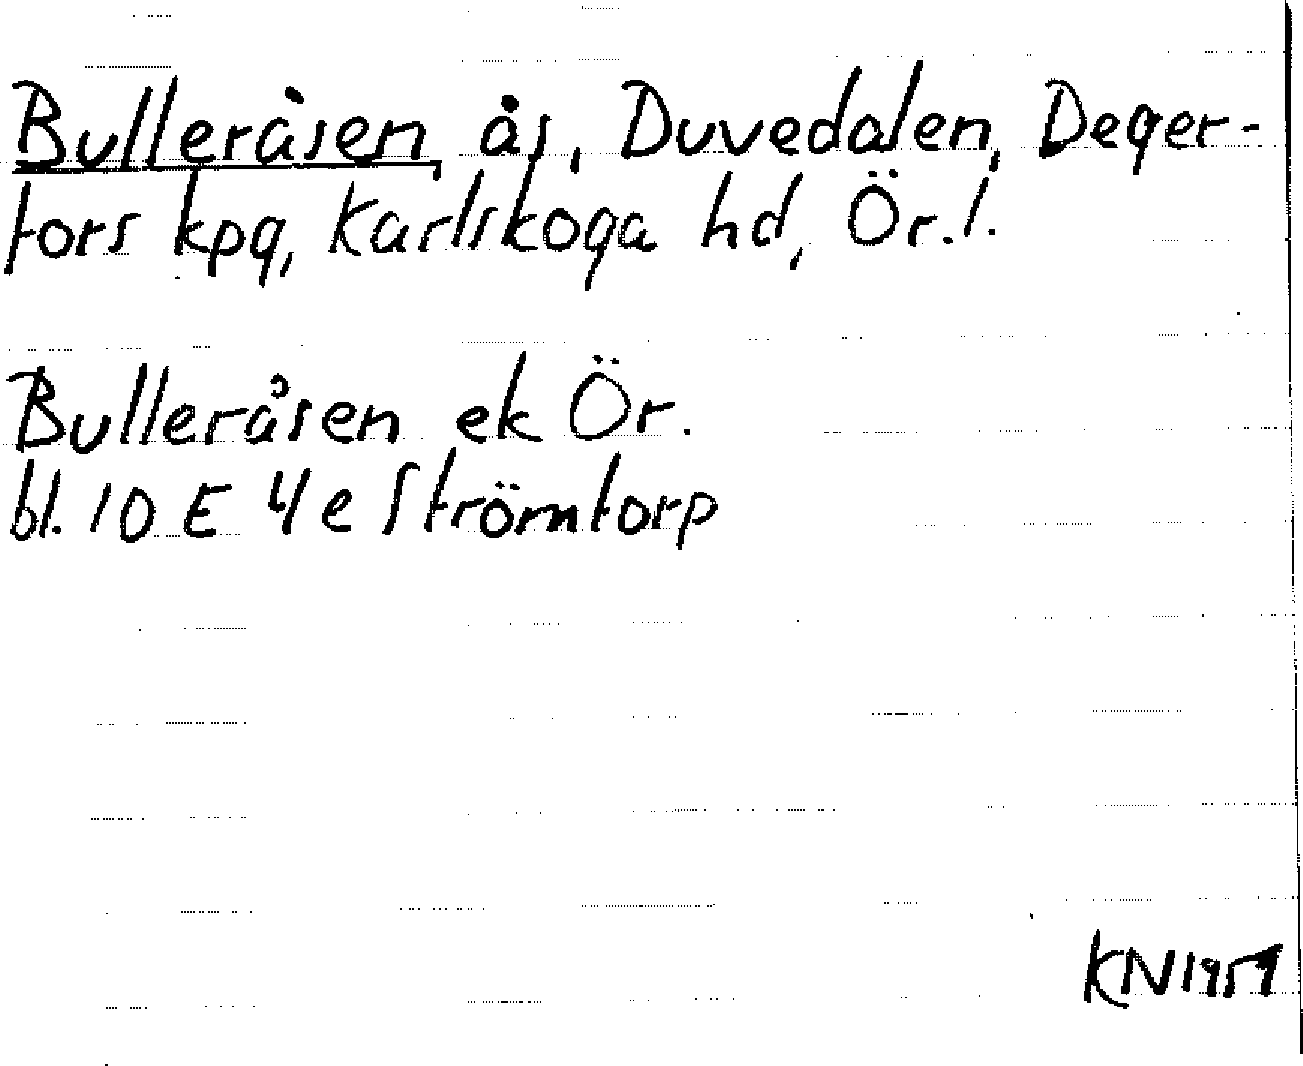 Bulleråsen, ås, Duvedalen, Deger-
fors kpg, Karlskoga hd, Ör.l.
Bulleråsen ek Ör.
bl. 10 E 4e Strömtorp